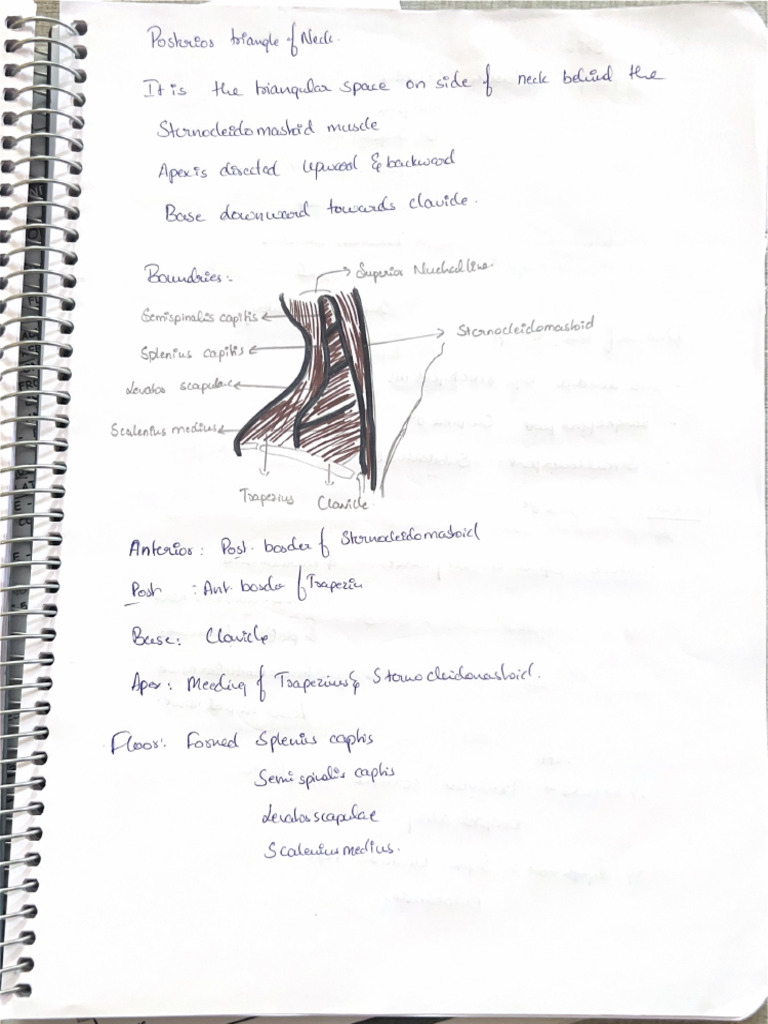 Posterior triangle of Neck.
It is the triangular space on side of neck behind the
Sternocleidomastoid muscle
Apex is directed upward & backward
Base downward towards clavicle.
Boundries:
Superior Nuchal line
Semispinalis capitis
Sternocleidomastoid
Splenius capitis
Levator scapulae
Scalenius medius
Trapezius Clavicle
Anterior: Post. border of Sternocleidomastoid
Post : Ant. border of Trapeziu
Base: Clavicle
Apex: Meeding of Trapezius & Sternocleidomastoid.
Floor: Formed Splenius caphis
Semispinalis caphis
Levator scapulae
Scalenius medius.